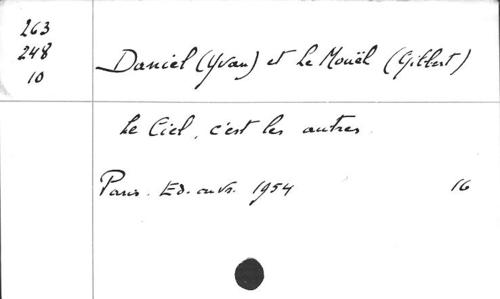 263
248
10
Daniel (Yvan) et Le Mouël (Gilbert)
Le Ciel, c'est les autres.
Paris. Ed. ouvr. 1954 16